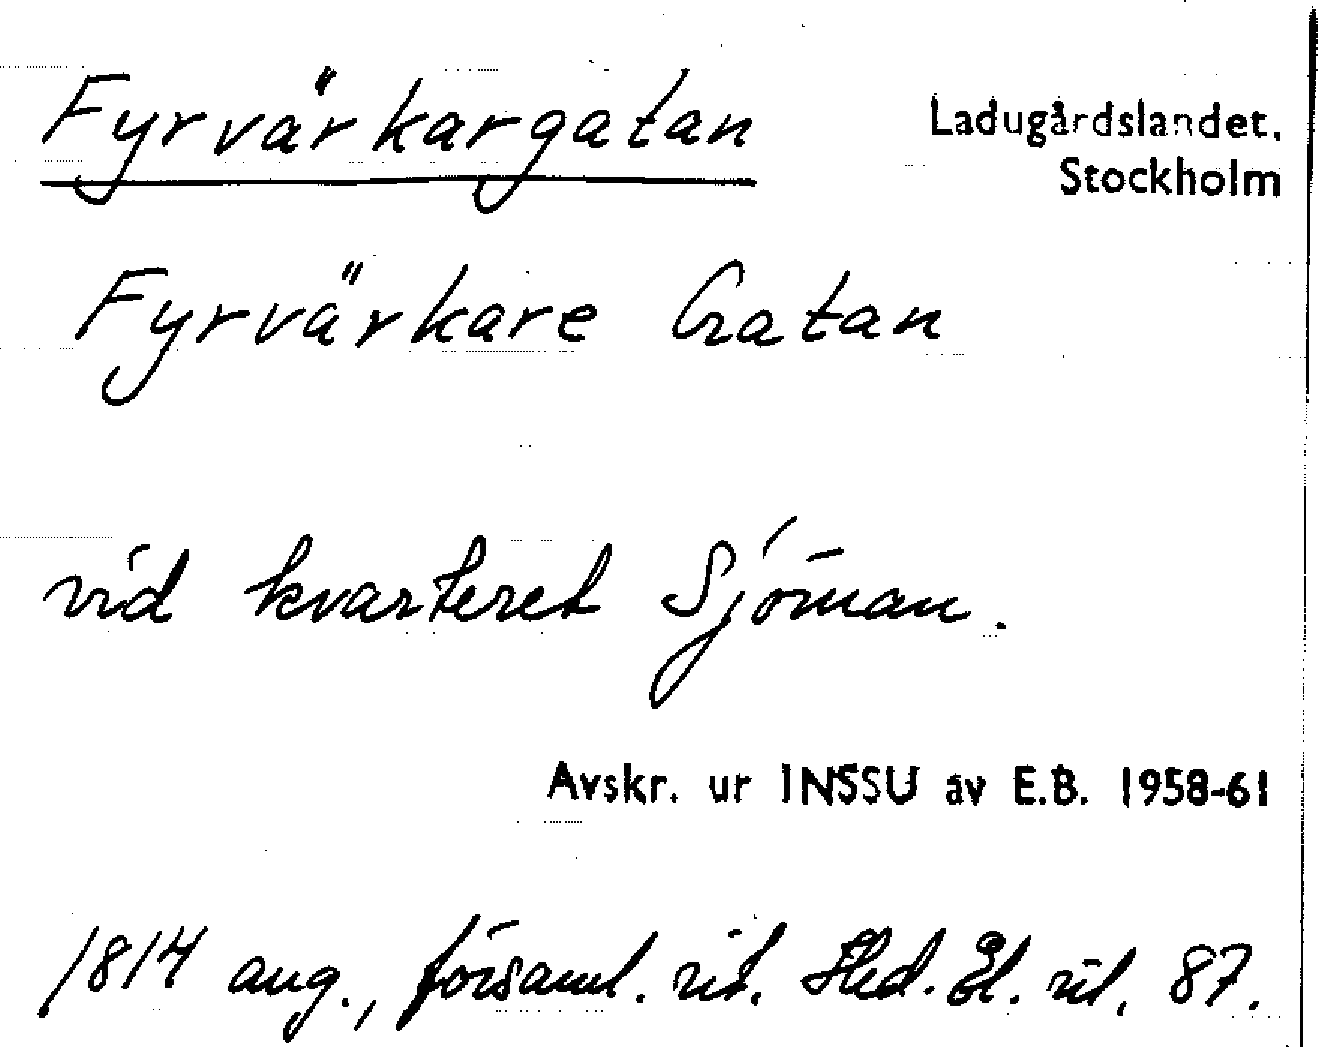 Fyrvärkargatan
Ladugårdslandet.
Stockholm
Fyrvärkare Gatan
vid kvarteret Sjöman.
Avskr. ur INSSU av E.B. 1958-61
1814 aug., församl. rit. Hed. El. rit. 87.